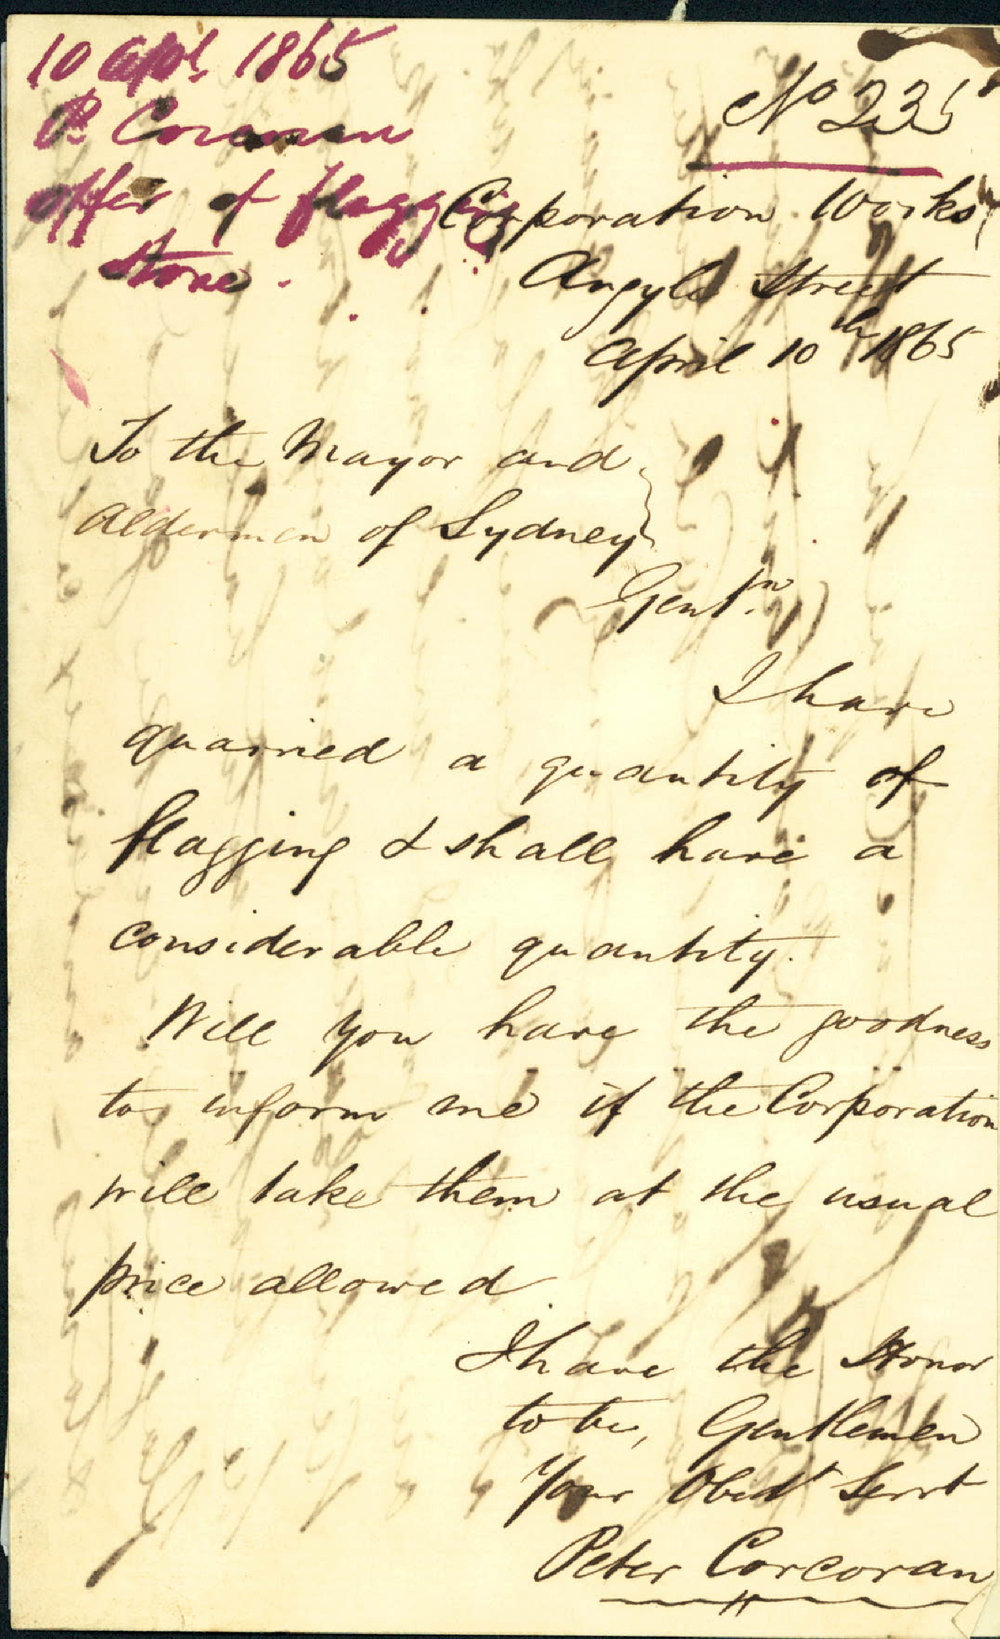 10 Apl. 1865
P. Corcoran
offer of flagging
Stone.
No 235
Corporation Works
Argyle Street
April 10th 1865
To the Mayor and
Aldermen of Sydney
Gentn.
I have
quarried a quantity of
flagging & shall have a
considerable quantity.
Will you have the goodness
to inform me if the Corporation
will take them at the usual
price allowed
I have the Honor
to be, Gentlemen
Your Obedt Servt
Peter Corcoran